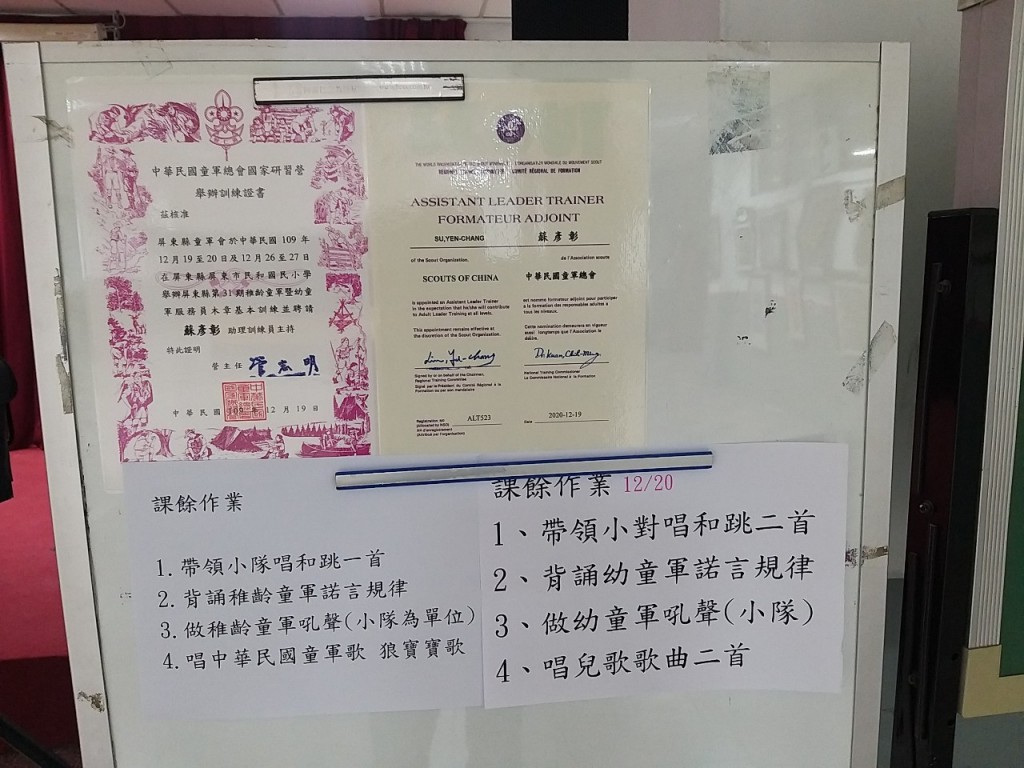 中華民國童軍總會國家研習營
舉辦訓練證書
茲核准
屏東縣童軍會於中華民國 109 年
12 月 19 至 20 日及 12 月 26 至 27 日
在屏東縣屏東市民和國民小學
舉辦屏東縣第 31 期稚齡童軍暨幼童
軍服務員木章基本訓練並聘請
蘇彥彰 助理訓練員主持
特此證明
營主任
中華民國 109 年 12 月 19 日
ASSISTANT LEADER TRAINER
FORMATEUR ADJOINT
SU,YEN-CHANG 蘇彥彰
of the Scout Organization. de l'Association scoute
SCOUTS OF CHINA 中華民國童軍總會
is appointed an Assistant Leader Trainer
in the expectation that he/she will contribute
to Adult Leader Training at all levels.
This appointment remains effective at
the discretion of the Scout Organization.
est nommé formateur adjoint pour participer
à la formation des responsables adultes à
tous les niveaux.
Cette nomination demeurera en vigueur
aussi longtemps que l'Association le
désire.
Signed by or on behalf of the Chairman,
Regional Training Committee
National Training Commissioner
ALT523
Date 2020-12-19
課餘作業
1. 帶領小隊唱和跳一首
2. 背誦稚齡童軍諾言規律
3. 做稚齡童軍吼聲(小隊為單位)
4. 唱中華民國童軍歌 狼寶寶歌
課餘作業 12/20
1、帶領小對唱和跳二首
2、背誦幼童軍諾言規律
3、做幼童軍吼聲(小隊)
4、唱兒歌歌曲二首